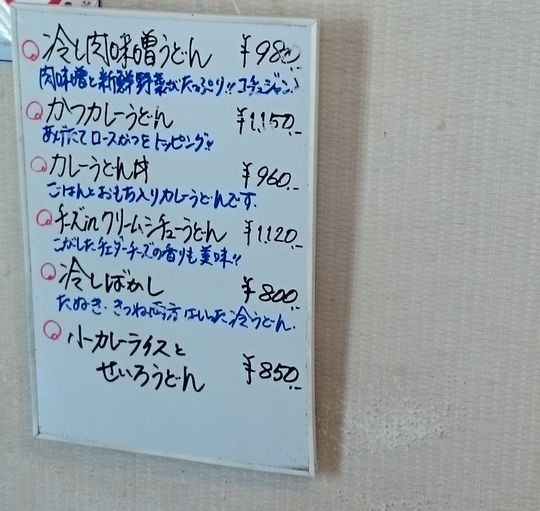 冷し肉味噌うどん ¥980.-
肉味噌と新鮮野菜がたっぷり!! コチュジャン
かつカレーうどん ¥1,150.-
あげたてロースかつをトッピング!!
カレーうどん丼 ¥960.-
ごはんとおもち入りカレーうどんです.
チーズinクリームシチューうどん ¥1,120.-
こがしたチェダーチーズの香りも美味!!
冷しばかし ¥800.-
たぬき・きつね両方はいった冷うどん.
小カレーライスと
せいろうどん ¥850.-